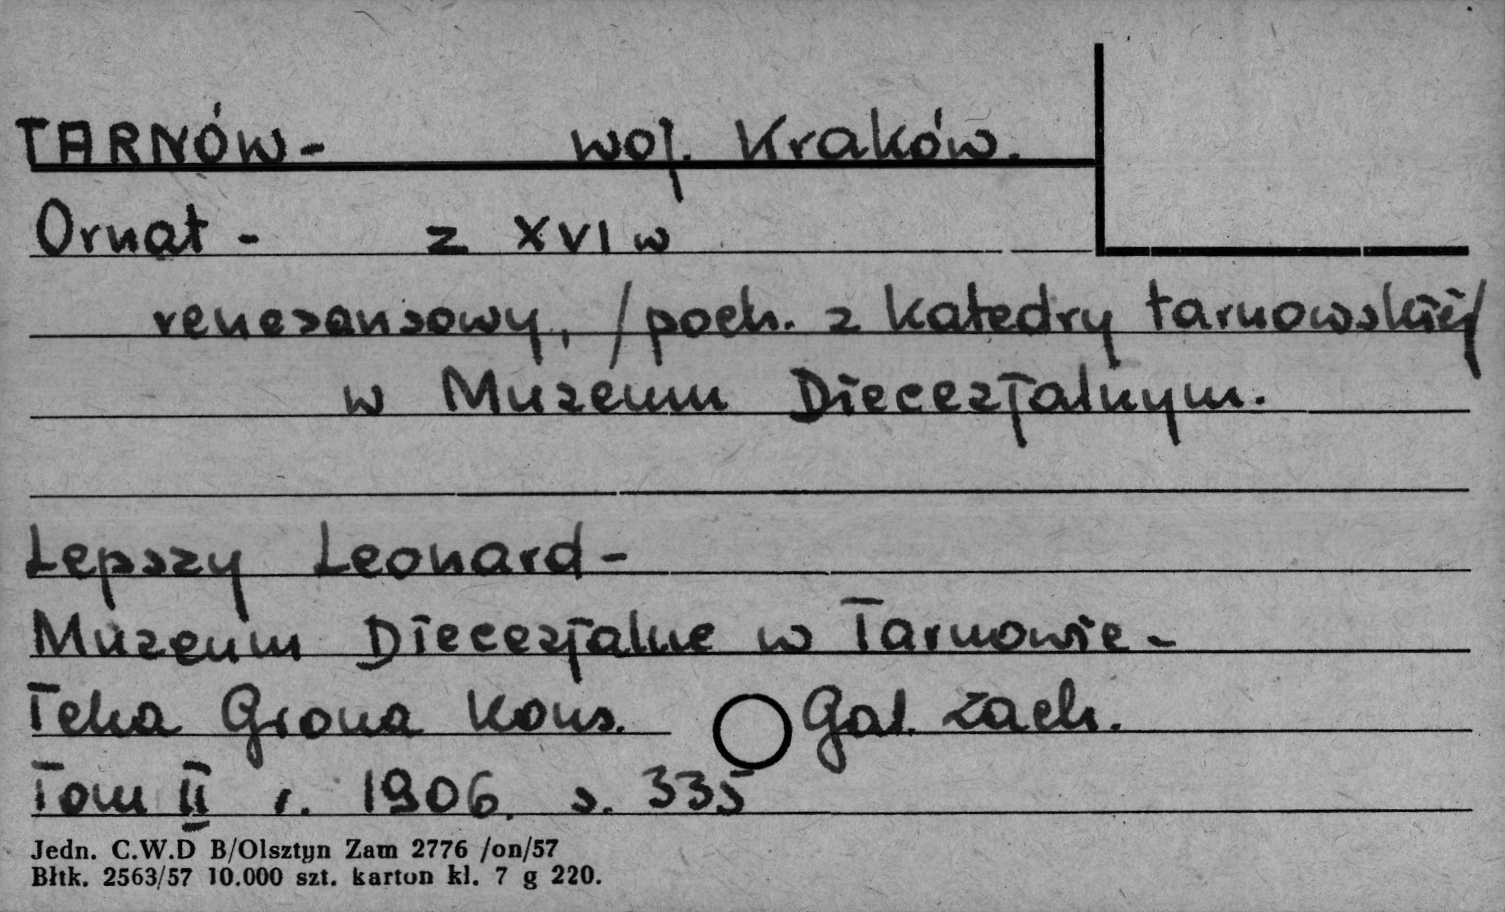 TARNÓW - woj. Kraków.
Ornat - z XVI w
renesansowy, /poch. z katedry tarnowskiej/
w Muzeum Diecezjalnym.
Lepszy Leonard -
Muzeum Diecezjalne w Tarnowie -
Teka Grona Kons. Gal. zach.
Tom II r. 1906. s. 335
Jedn. C.W.D B/Olsztyn Zam 2776 /on/57
Błtk. 2563/57 10.000 szt. karton kl. 7 g 220.